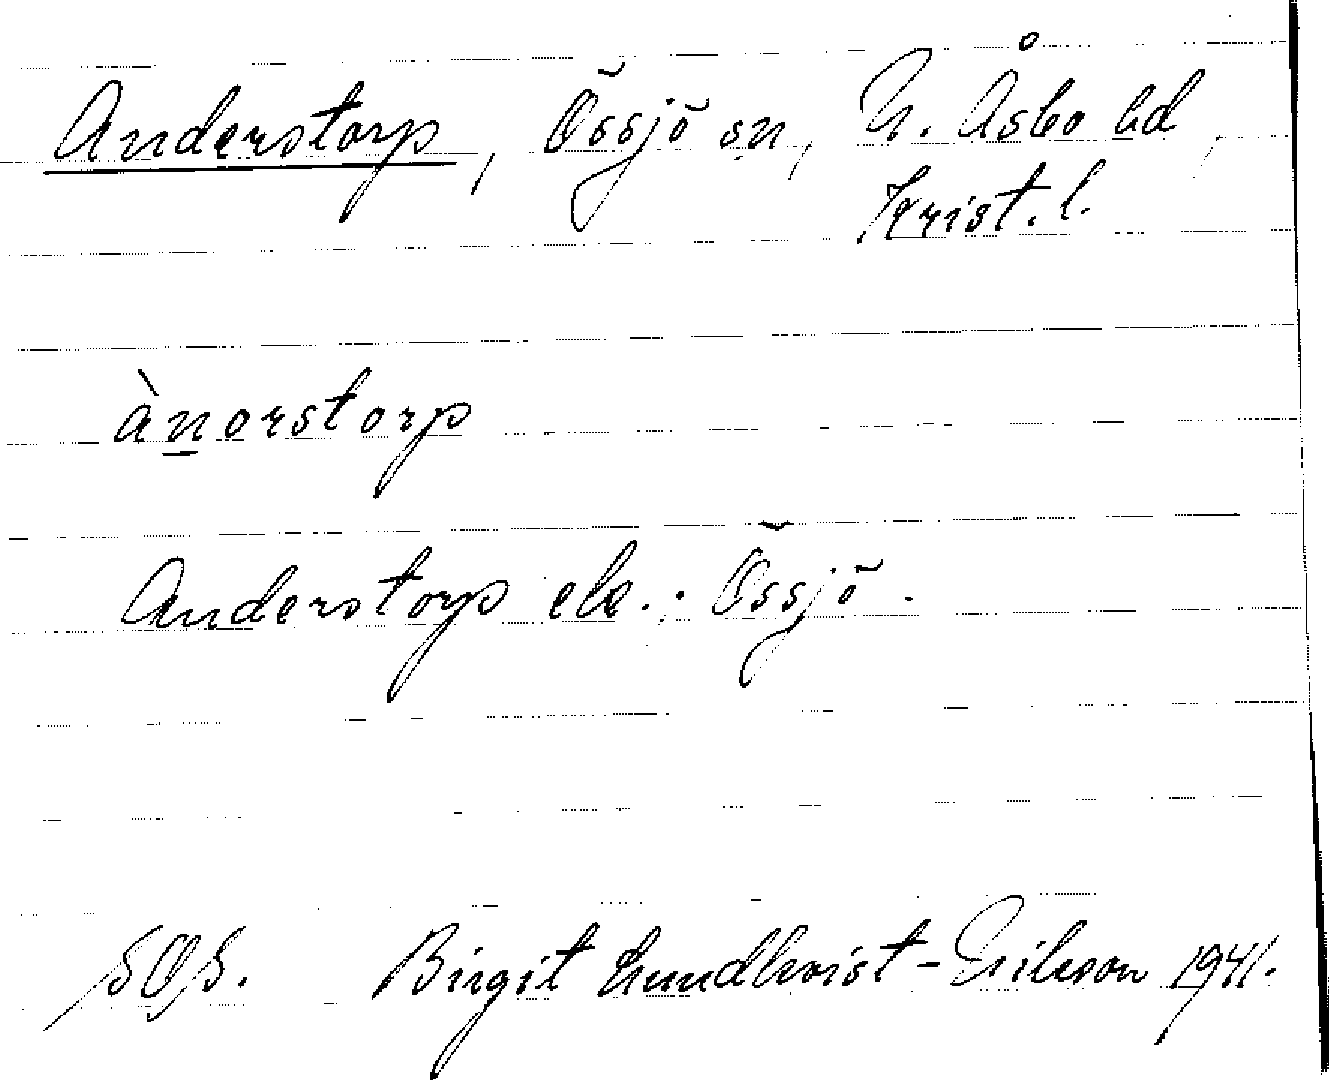 Anderstorp, Össjö sn, N. Åsbo hd,
Krist. l.
ànorstorp
Anderstorp ek.: Össjö.
SOS. Birgit Lundkvist-Erikson 1941.